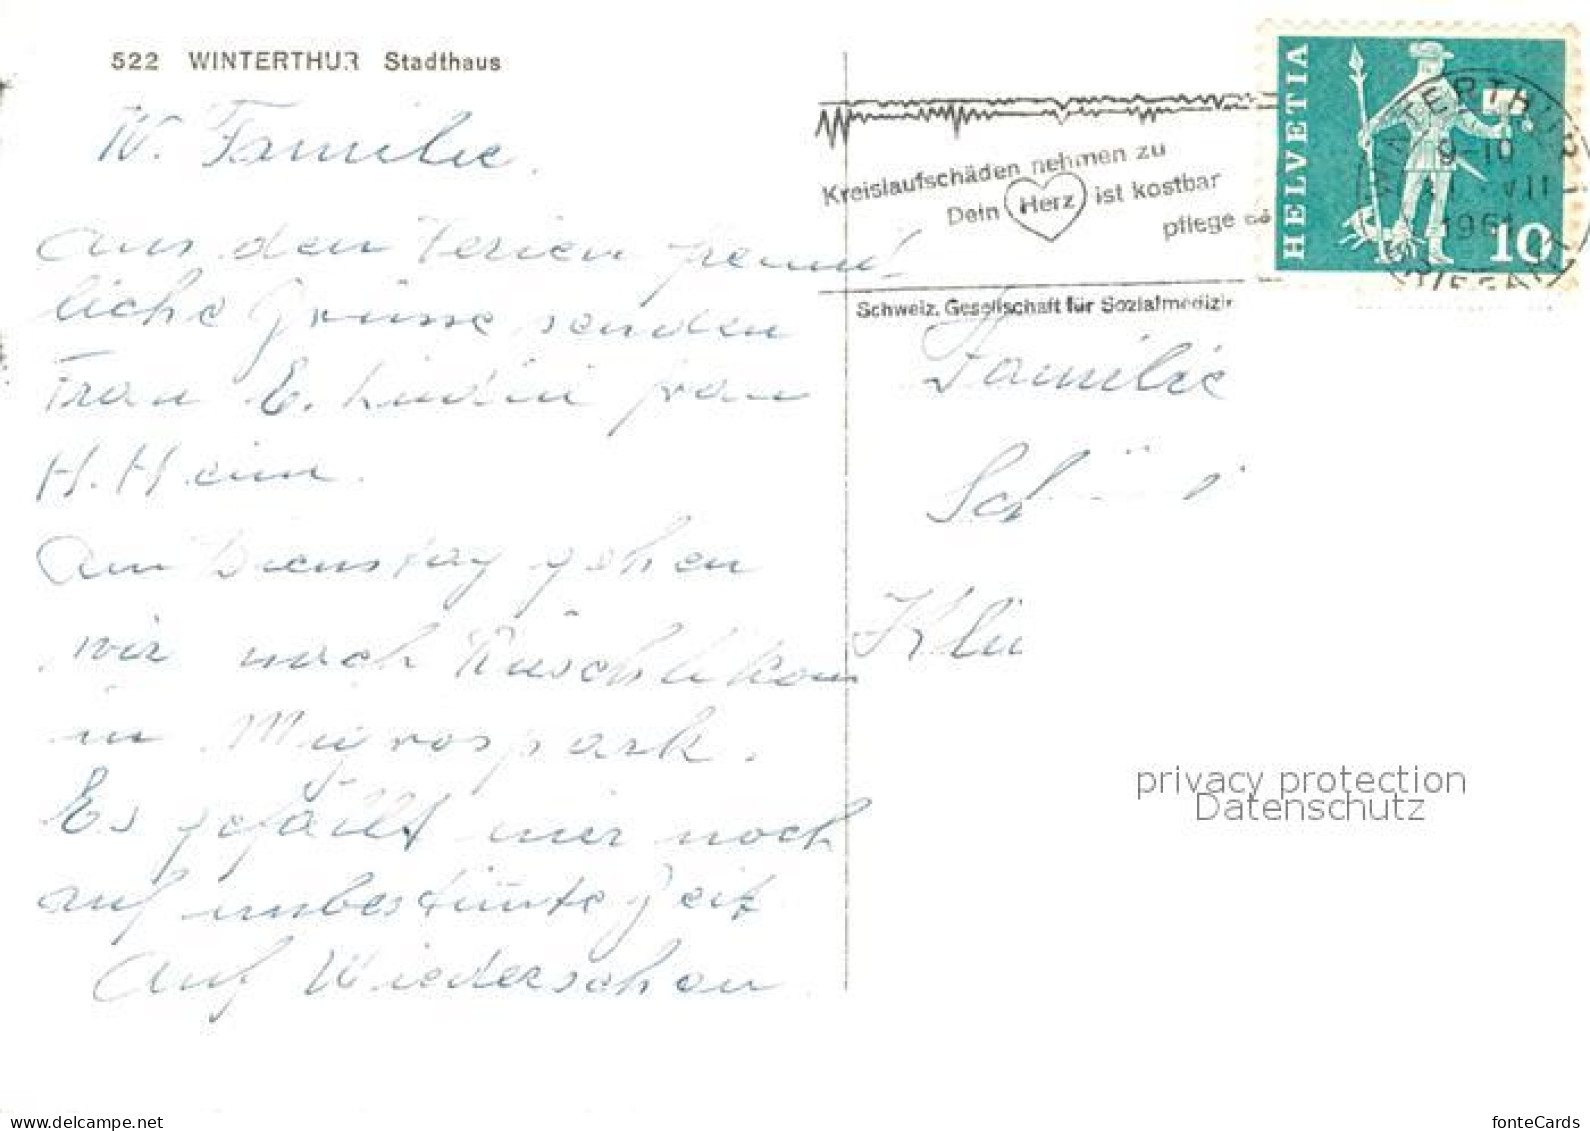 522 WINTERTHUR Stadthaus
W. Familie.
Aus den Ferien freund-
liche Grüsse senden
Frau E. frau
H. Heim.
Am Dienstag gehen
wir nach Rüschlikon
in Migrospark.
Es gefällt mir noch
auf unbestimmte Zeit
Auf Wiedersehen
Kreislaufschäden nehmen zu
Dein Herz ist kostbar
pflege es
Schweiz. Gesellschaft für Sozialmedizin
HELVETIA
10
WINTERTHUR 1
9-10
VII
BRIEFE
Familie
Sch
privacy protection
Datenschutz
www.delcampe.net
fonteCards